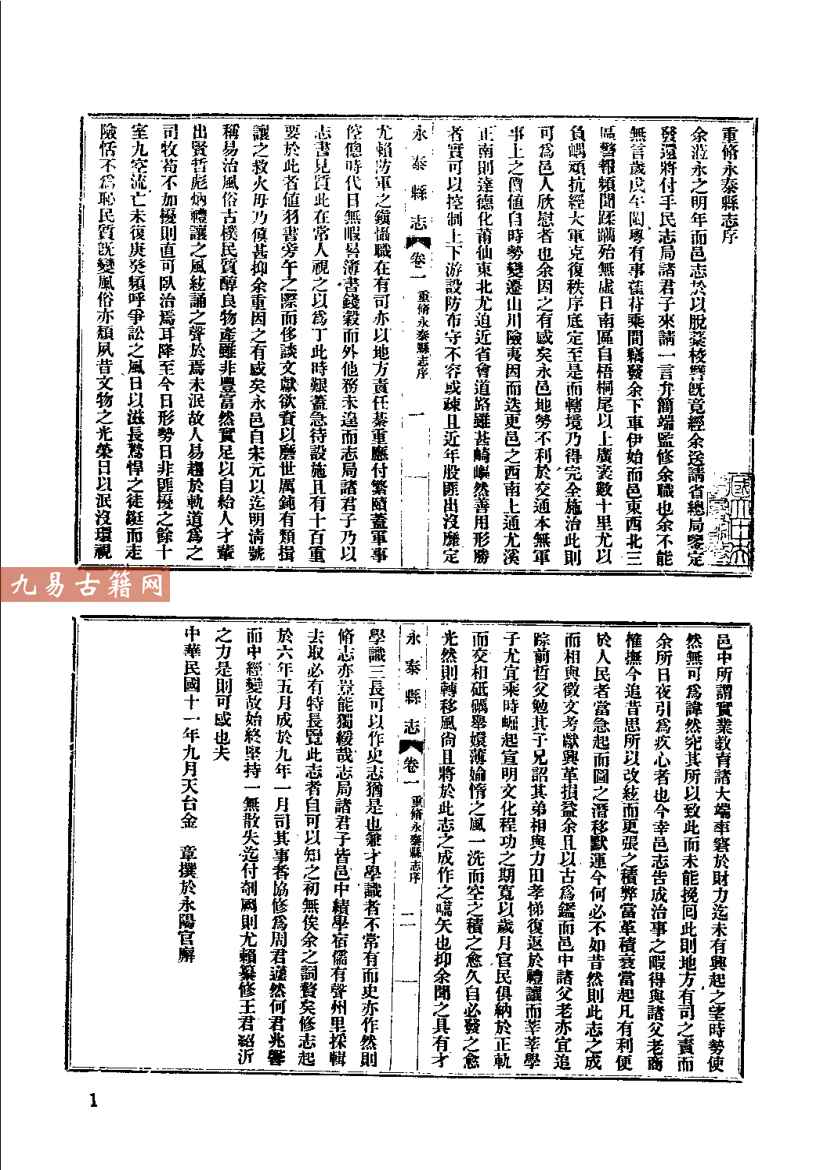 重修永泰縣志序
余涖永之明年而邑志於以脫稾校讐旣竟經余送請省總局鑒定
發還將付手民志局諸君子來請一言弁簡端監修余職也余不能
無言歲戊午閩粵有事萑苻乘間竊發余下車伊始而邑東西北三
區警報頻聞蹂躪殆無虛日南區自梧桐尾以上廣袤數十里尤以
負嵎頑抗經大軍克復秩序底定至是而轄境乃得完全施治此則
可為邑人欣慰者也余因之有感矣永邑地勢不利於交通本無軍
事上之價値自時勢變遷山川險夷因而迭更邑之西南上通尤溪
正南則達德化莆仙東北尤迫近省會道路雖甚崎嶇然善用形勝
者實可以控制上下游設防布守不容或疎且近年股匪出沒靡定
永泰縣志
卷一
重修永泰縣志序
一
尤賴防軍之鎭懾職在有司亦以地方責任綦重應付繁頤蓋軍事
倥傯時代日無暇晷簿書錢穀而外他務未遑而志局諸君子乃以
志書見質此在常人視之以為丁此時艱蓋急待設施且有十百重
要於此者値羽書旁午之際而侈談文獻欲資以磨世厲鈍有類揖
讓之救火毋乃傎甚抑余重因之有感矣永邑自宋元以迄明清號
稱易治風俗古樸民質醇良物產雖非豐富然實足以自給人才輩
出賢哲彪炳禮讓之風絃誦之聲於焉未泯故人易趨於軌道為之
司牧苟不加擾則直可臥治焉耳降至今日形勢日非匪擾之餘十
室九空流亡未復庚癸頻呼爭訟之風日以滋長驁悍之徒鋌而走
險恬不為恥民質旣變風俗亦頹夙昔文物之光榮日以泯沒環視
邑中所謂實業教育諸大端率窘於財力迄未有興起之望時勢使
然無可為諱然究其所以致此而未能挽回此則地方有司之責而
余所日夜引為疚心者也今幸邑志告成治事之暇得與諸父老商
榷撫今追昔思所以改絃而更張之積弊當革積衰當起凡有利便
於人民者當急起而圖之潛移默運今何必不如昔然則此志之成
而相與徵文考獻興革損益余且以古為鑑而邑中諸父老亦宜追
踪前哲父勉其子兄詔其弟相與力田孝悌復返於禮讓而莘莘學
子尤宜乘時崛起宣明文化程功之期寬以歲月官民俱納於正軌
而交相砥礪舉嬛薄媮惰之風一洗而空之積之愈久自必發之愈
光然則轉移風尙且將於此志之成作之嚆矢也抑余聞之具有才
永泰縣志
卷一
重修永泰縣志序
二
學識三長可以作史志猶是也兼才學識者不常有而史亦作然則
脩志亦豈能獨緩哉志局諸君子皆邑中績學宿儒有聲州里採輯
去取必有特長覽此志者自可以知之初無俟余之詞贅矣修志起
於六年五月成於九年一月司其事者協修為周君邃然何君兆
而中經變故始終堅持一無散失迄付剞劂則尤賴纂修王君紹沂
之力是則可感也夫
中華民國十一年九月天台金 章撰於永陽官廨
九易古籍网
1